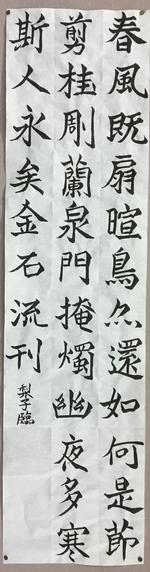 春風既扇暄鳥亦還如何是節
剪桂剛蘭泉門掩燭幽夜多寒
斯人永矣金石流刊
梨子臨